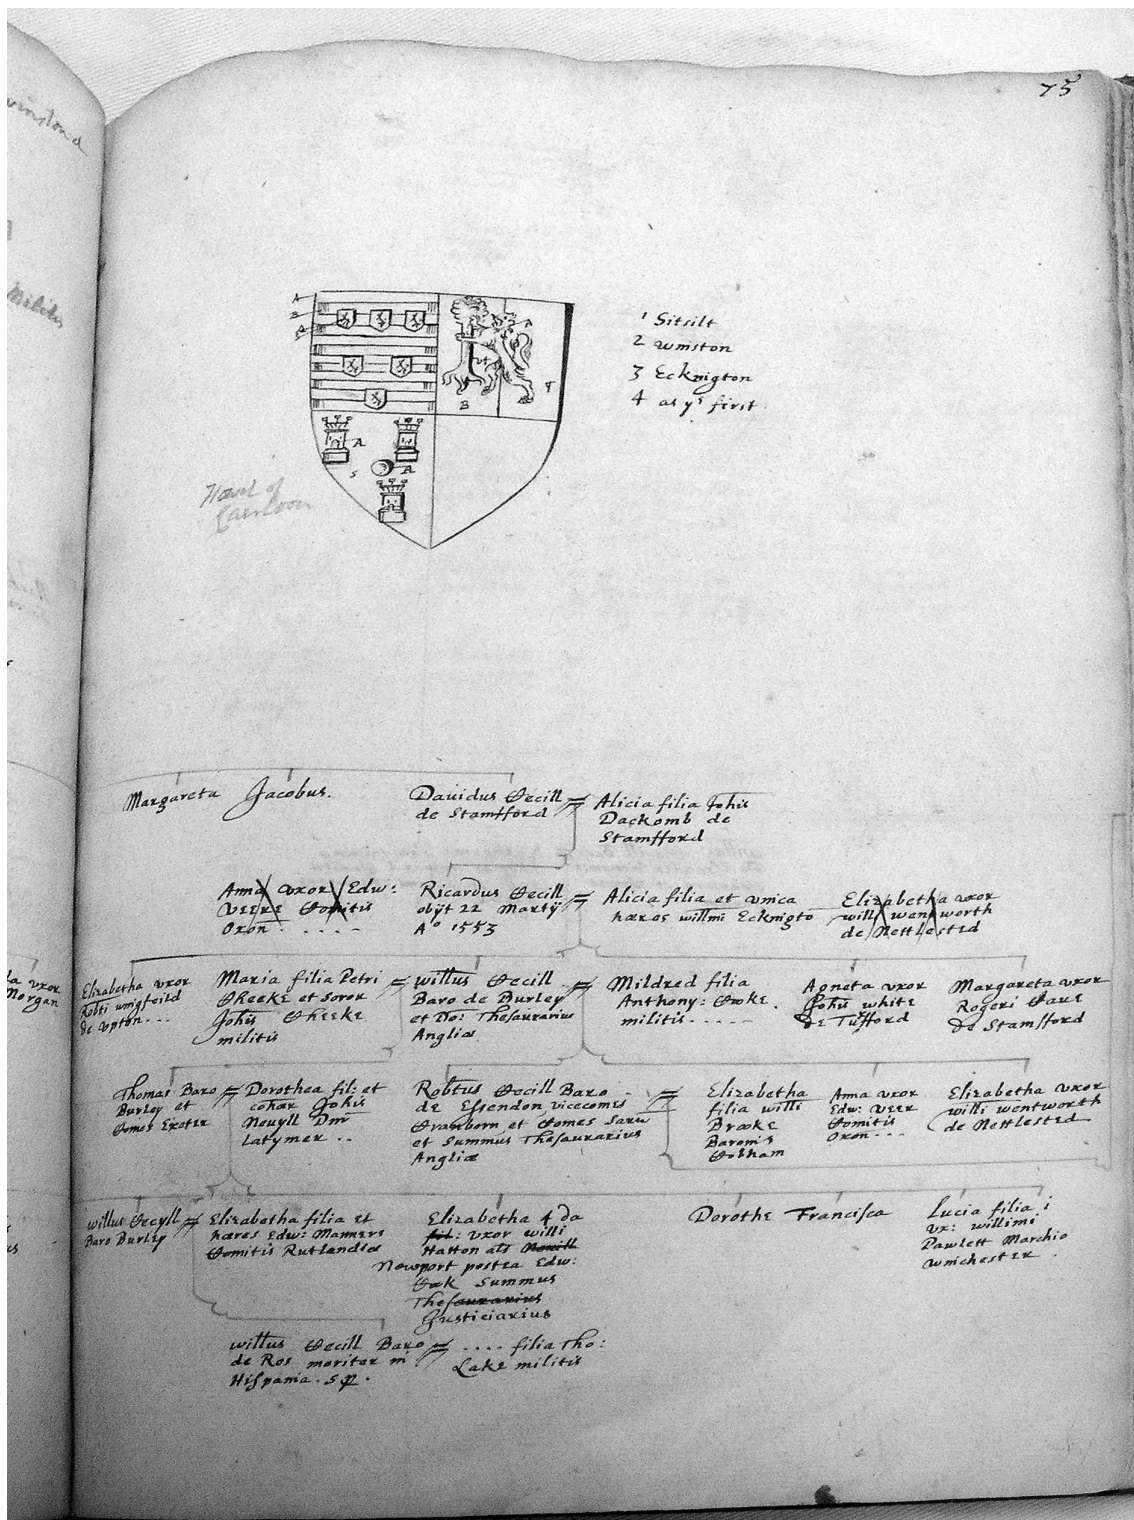 75
1 Sitsilt
2 winston
3 Ecknigton
4 as yͤ first
A
B
A
A
B
T
A
S
A
Margareta
Jacobus.
Dauidus Cecill
de Stamfford
Alicia filia Johis
Dackomb de
Stamfford
Anna vxor Edw:
VEERE Comitis
Oxon . . . . .
Ricardus Cecill
obijt 22 Martij
Aº 1553
Alicia filia et vnica
hæres willmi Ecknigto
Elizabetha vxor
willi wentworth
de Nettlested
Morgan
Elizabetha vxor
Robti wingfeild
de vpton . . .
Maria filia Petri
Cheeke et soror
Johis Cheeke
militis
willus Cecill
Baro de Burley
et Do: Thesaurarius
Angliæ
Mildred filia
Anthony: Cooke .
militis . . . . .
Agneta vxor
Johis white
de Tufford
Margareta vxor
Rogeri Caue
de Stamfford
Thomas Baro
Burley et
Comes Exoter
Dorothea fil: et
cohær Johis
Neuyll Dni
Latymer . .
Robtus Cecill Baro
de Essendon vicecomes
Cranborn et Comes Saru
et Summus Thesaurarius
Angliæ
Elizabetha
filia willi
Brooke
Baronis
Cobham
Anna vxor
Edw: VEER
Comitis
Oxon . . .
Elizabetha vxor
willi wentworth
de Nettlested
willus Cecyll
Baro Burley
Elizabetha filia et
hæres Edw: Manners
Comitis Rutlandiæ
Elizabetha 4 da
fil: vxor willi
Hatton als Newill
Newport postea Edw:
Cok Summus
Thesaurarius
Justiciarius
Dorothe
Francisca
Lucia filia i
vx: willimi
Pawlett Marchio
winchester .
willus Cecill Baro
de Ros moritur in
Hispania . sp .
. . . . filia Tho:
Lake militis